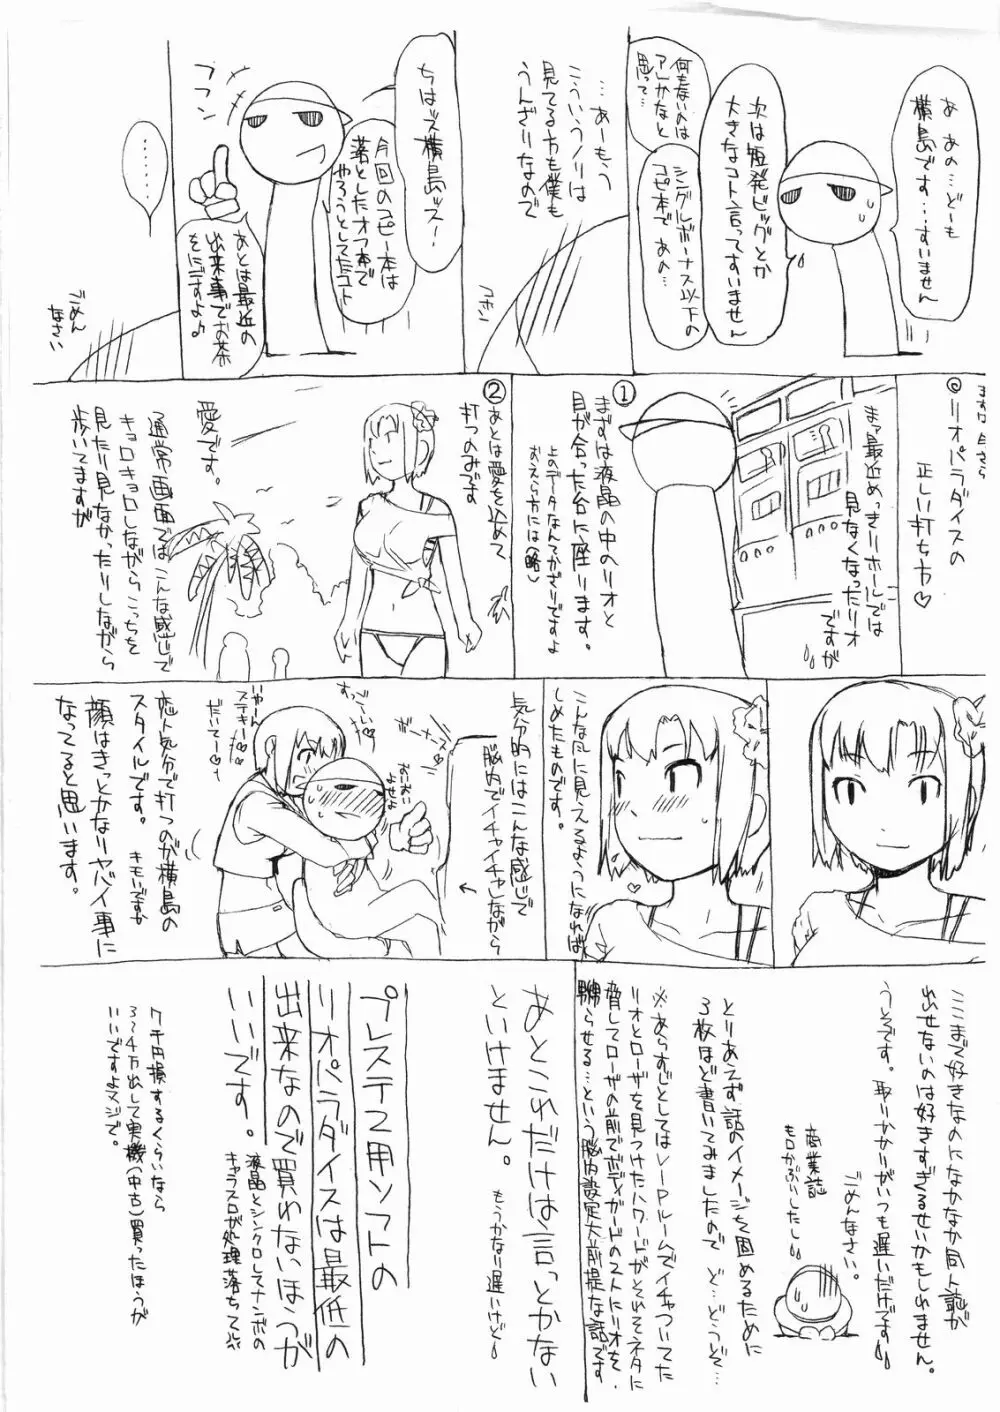 あ あの…どーも
横島です…すいません
次は短発ビッグとか
大きなコト言ってすいません
シングルボーナス以下の
コピ本で あの…
何もないのは
アレかなと
思って…
…あーもう
こういうノリは
見てる方も僕も
うんざりなので
コホン
ちはッス横島ッス!
今回のコピー本は
落としたオフ本で
やろうとしてたコト
あとは最近の
出来事でお茶
をにごすよ♪
フフン
………
ごめん
なさい
◎リオパラダイスの
正しい打ち方♡
まァ最近めっきりホールでは
見なくなったリオ
ですが
①
まずは液晶の中のリオと
目が合った台に座ります。
上のデータなんてかざりですよ
おえら方には(略)
②
あとは愛を込めて
打つのみです
愛です。
通常画面ではこんな感じで
キョロキョロしながらこっちを
見たり見なかったりしながら
歩いてますが
こんな風に見えるようになれば
しめたものです。
気分的にはこんな感じで
脳内でイチャイチャしながら
すっごーい
いやーん
ステキー♡
だいてー♡
恋人気分で打つのが横島の
スタイルです。
キモいですか
顔はきっとかなりヤバイ事に
なってると思います。
ここまで好きなのになかなか同人誌が
出せないのは好きすぎるせいかもしれません。
うそです。取りかかりがいつも遅いだけです
ごめんなさい。
商業誌
もロかぶりしたし
とりあえず話のイメージを固めるために
3枚ほど書いてみましたので ど…どうぞ…
※あらすじとしてはVIPルームでイチャついてた
リオとローザを見つけたハワードがそれをネタに
脅してローザの前でボディガードのストにリオを
嬲らせる…という脳内設定大前提な話です
あとこれだけは言っとかない
といけません。
もうかなり遅いけど
プレステ2用ソフトの
リオパラダイスは最低の
出来なので買わないほうが
いいです。
液晶とシンクロしてナンボの
キャラスロが処理落ちて
7千円損するくらいなら
3~4万出して実機(中古)買ったほうが
いいですよマジで。